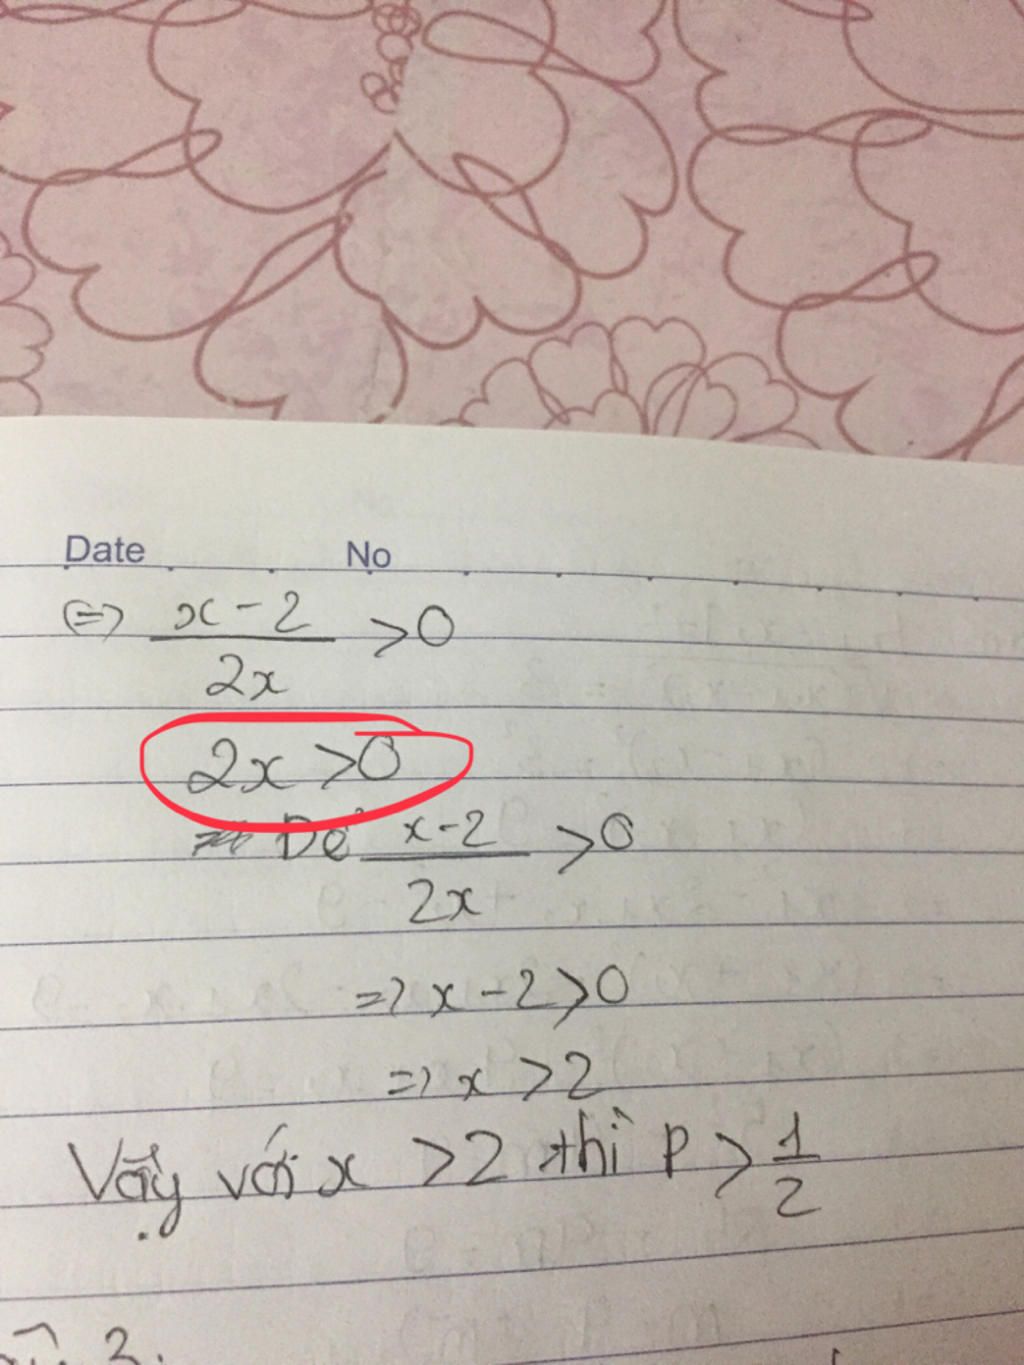 Date No
<=> x - 2 / 2x > 0
2x > 0
Để x - 2 / 2x > 0
=> x - 2 > 0
=> x > 2
Vậy với x > 2 thì P > 1/2